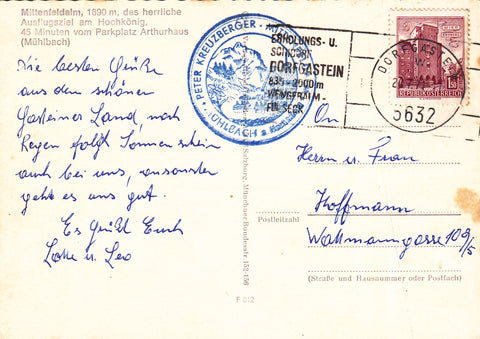 Mittenfeldalm, 1690 m, das herrliche
Ausflugsziel am Hochkönig.
45 Minuten vom Parkplatz Arthurhaus
(Mühlbach)
Die besten Grüße
aus dem schönen
Gasteiner Land, nach
Regen folgt Sonnenschein
auch bei uns, ansonsten
geht es uns gut.
Es grüßt Euch
Lotte u. Leo
PETER KREUZBERGER
MÜHLBACH a.
ERHOLUNGS- U.
SCHIDORF
DORFGASTEIN
835 - 2000 m
WENGERALM -
FULSECK
DORFGASTEIN
5632
REPUBLIK ÖSTERREICH
An
Herrn u. Frau
Hoffmann
Postleitzahl
Wattmanngasse 109/5
(Straße und Hausnummer oder Postfach)
Salzburg, Münchner Bundesstr. 152-156
F 612